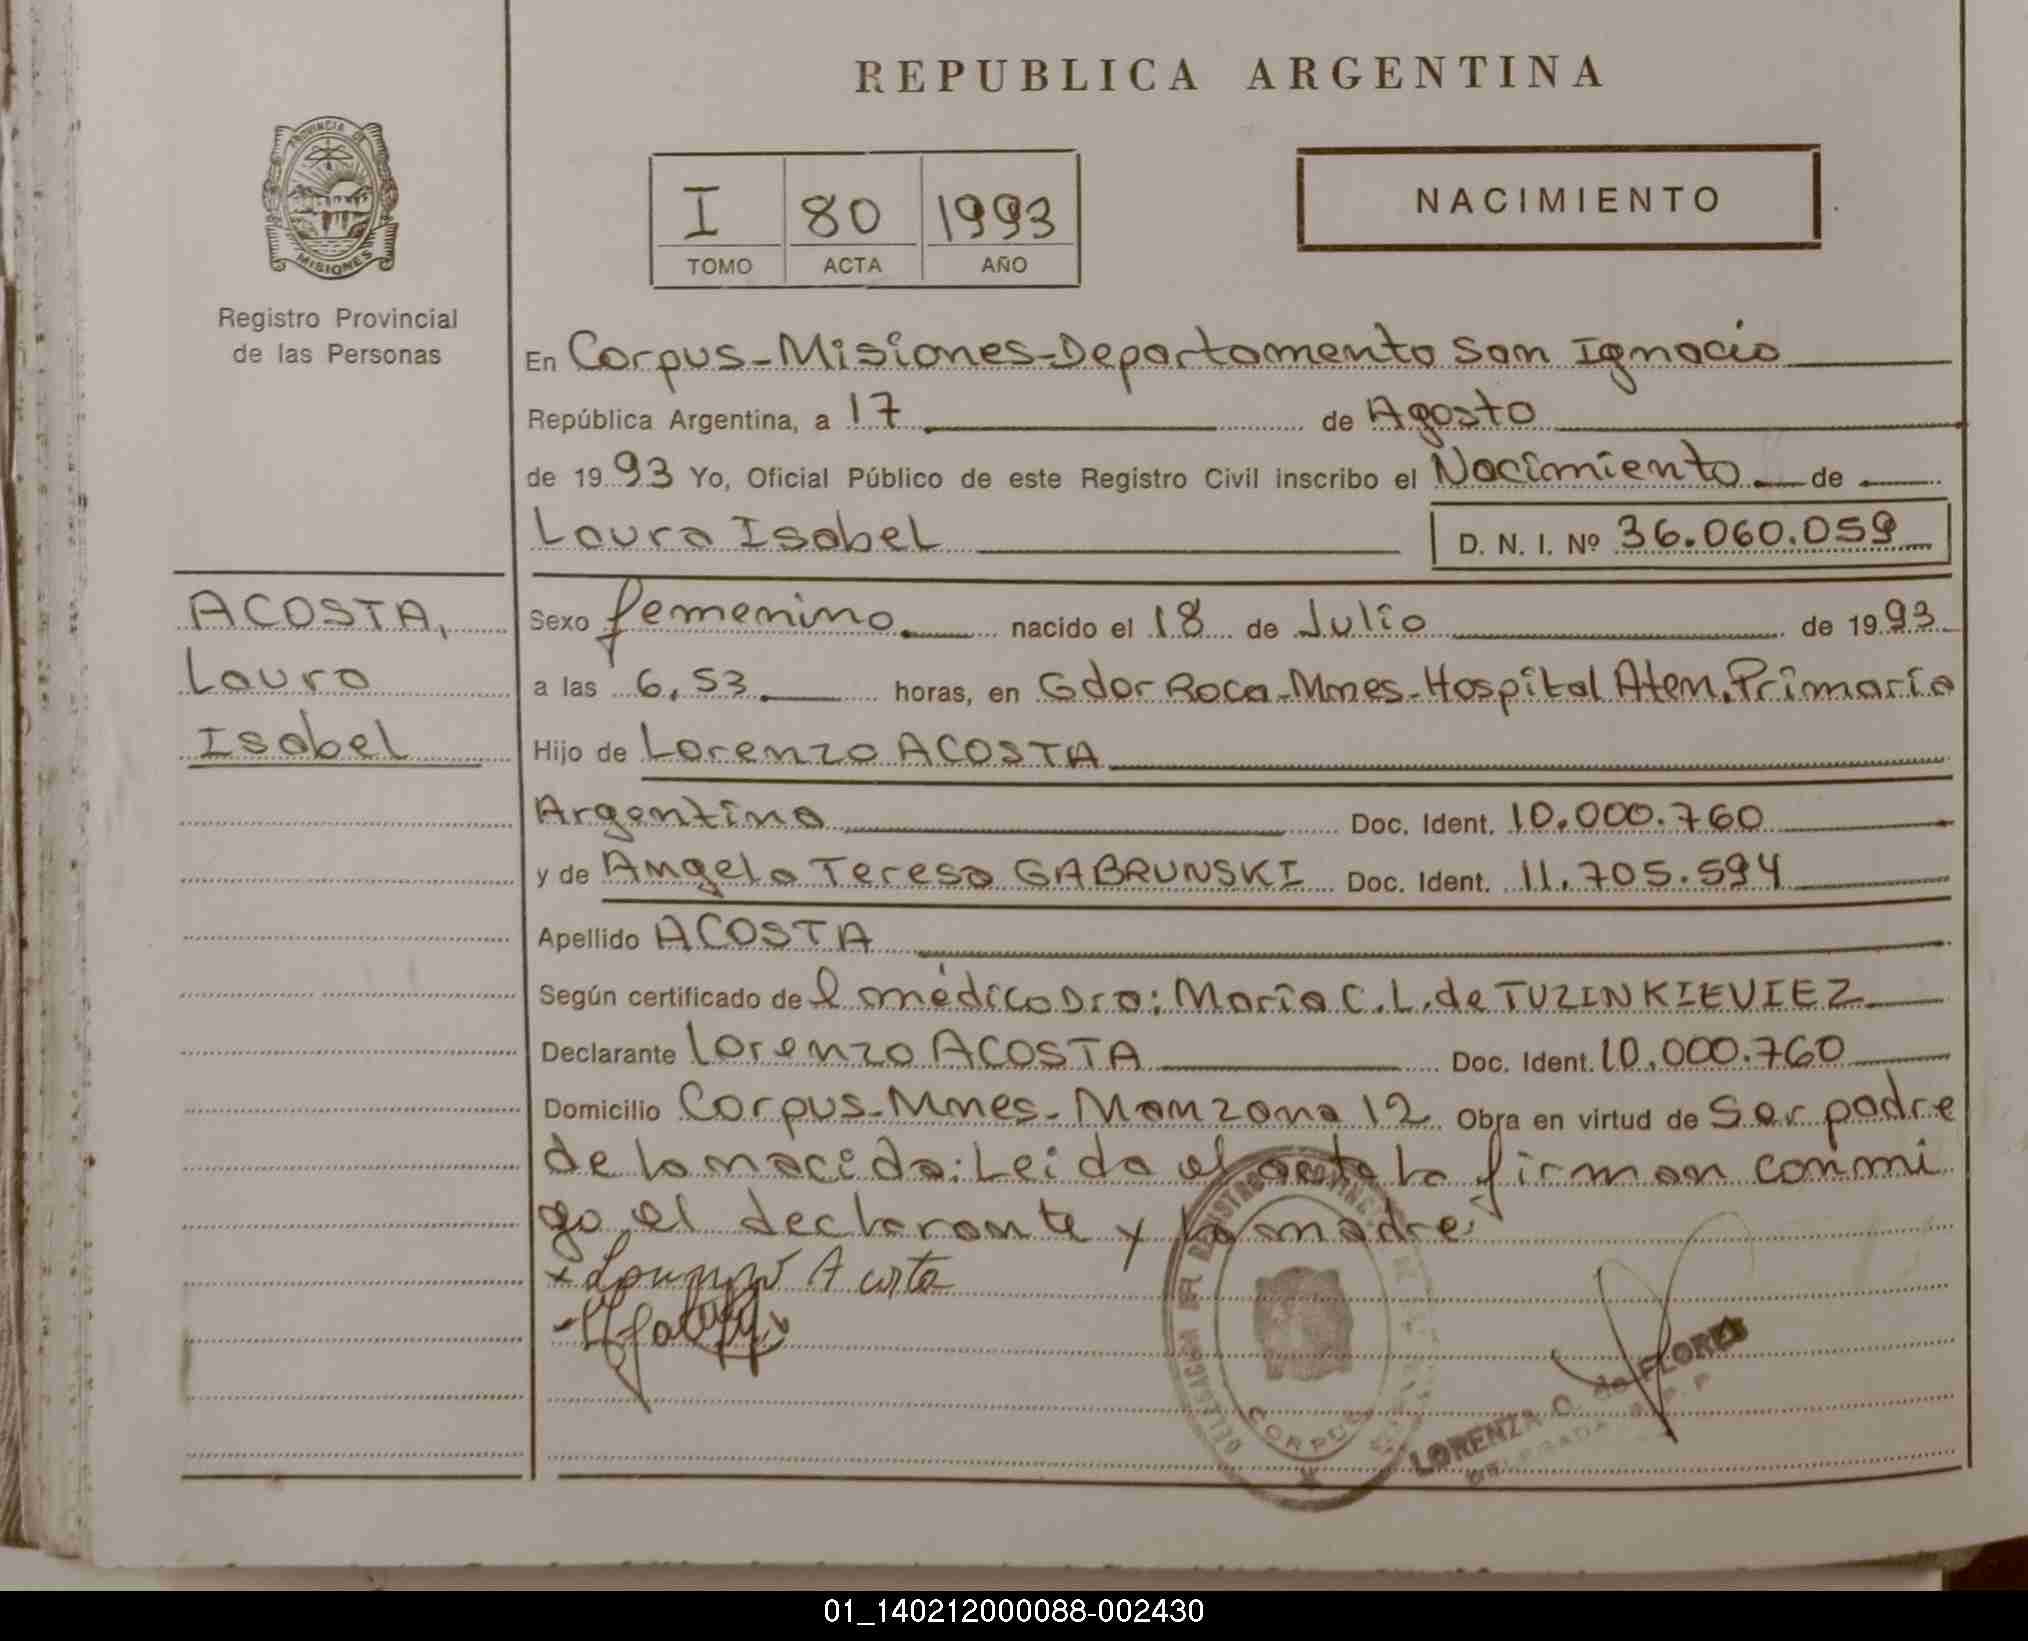 REPUBLICA ARGENTINA
PROVINCIA DE
MISIONES
Registro Provincial
de las Personas
I 80 1993
TOMO ACTA AÑO
NACIMIENTO
En Corpus-Misiones-Departamento San Ignacio
República Argentina, a 17 de Agosto
de 1993 Yo, Oficial Público de este Registro Civil inscribo el Nacimiento de
Laura Isabel D. N. I. Nº 36.060.059
ACOSTA,
Laura
Isabel
Sexo femenino nacido el 18 de Julio de 1993
a las 6,53 horas, en Gdor Roca-Mnes-Hospital Aten. Primaria
Hijo de Lorenzo ACOSTA
Argentina Doc. Ident. 10.000.760
y de Angela Teresa GABRUNSKI Doc. Ident. 11.705.594
Apellido ACOSTA
Según certificado del médico Dra: María C.L. de TUZINKIEVIEZ
Declarante Lorenzo ACOSTA Doc. Ident. 10.000.760
Domicilio Corpus-Mnes-Manzana 12 Obra en virtud de Ser padre
de la nacida: Leida el acta la firman conmi
go el declarante y la madre:
x Lorenzo Acosta
CORPUS
LORENZA O. de FLORES
DELEGADA R. P. P.
01_140212000088-002430